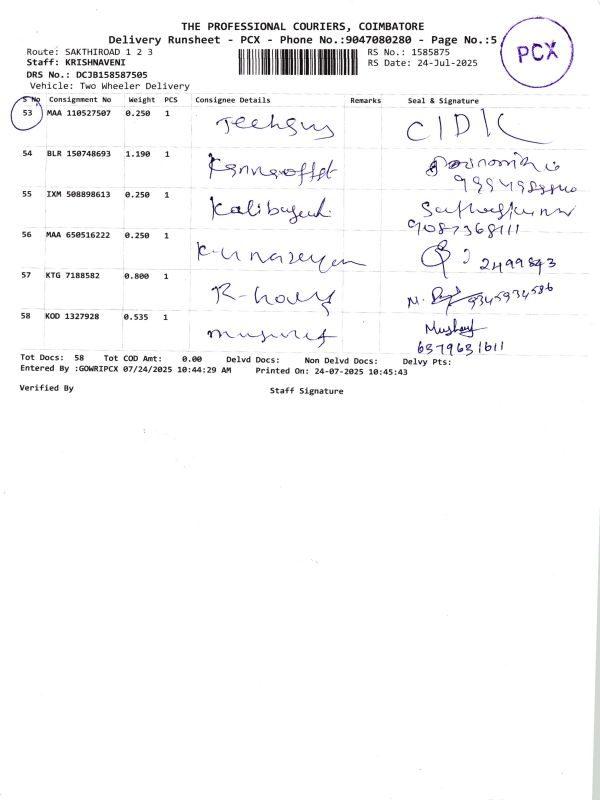 THE PROFESSIONAL COURIERS, COIMBATORE
Delivery Runsheet - PCX - Phone No.:9047080280 - Page No.:5
PCX
Route: SAKTHIROAD 1 2 3
RS No.: 1585875
Staff: KRISHNAVENI
RS Date: 24-Jul-2025
DRS No.: DCJB158587505
Vehicle: Two Wheeler Delivery
S No Consignment No Weight PCS Consignee Details Remarks Seal & Signature
53 MAA 110527507 0.250 1
54 BLR 150748693 1.190 1
55 IXM 508898613 0.250 1
9087368111
56 MAA 650516222 0.250 1
2499843
57 KTG 7188582 0.800 1
9345934586
58 KOD 1327928 0.535 1
6379631611
Tot Docs: 58 Tot COD Amt: 0.00 Delvd Docs: Non Delvd Docs: Delvy Pts:
Entered By :GOWRIPCX 07/24/2025 10:44:29 AM Printed On: 24-07-2025 10:45:43
Verified By
Staff Signature